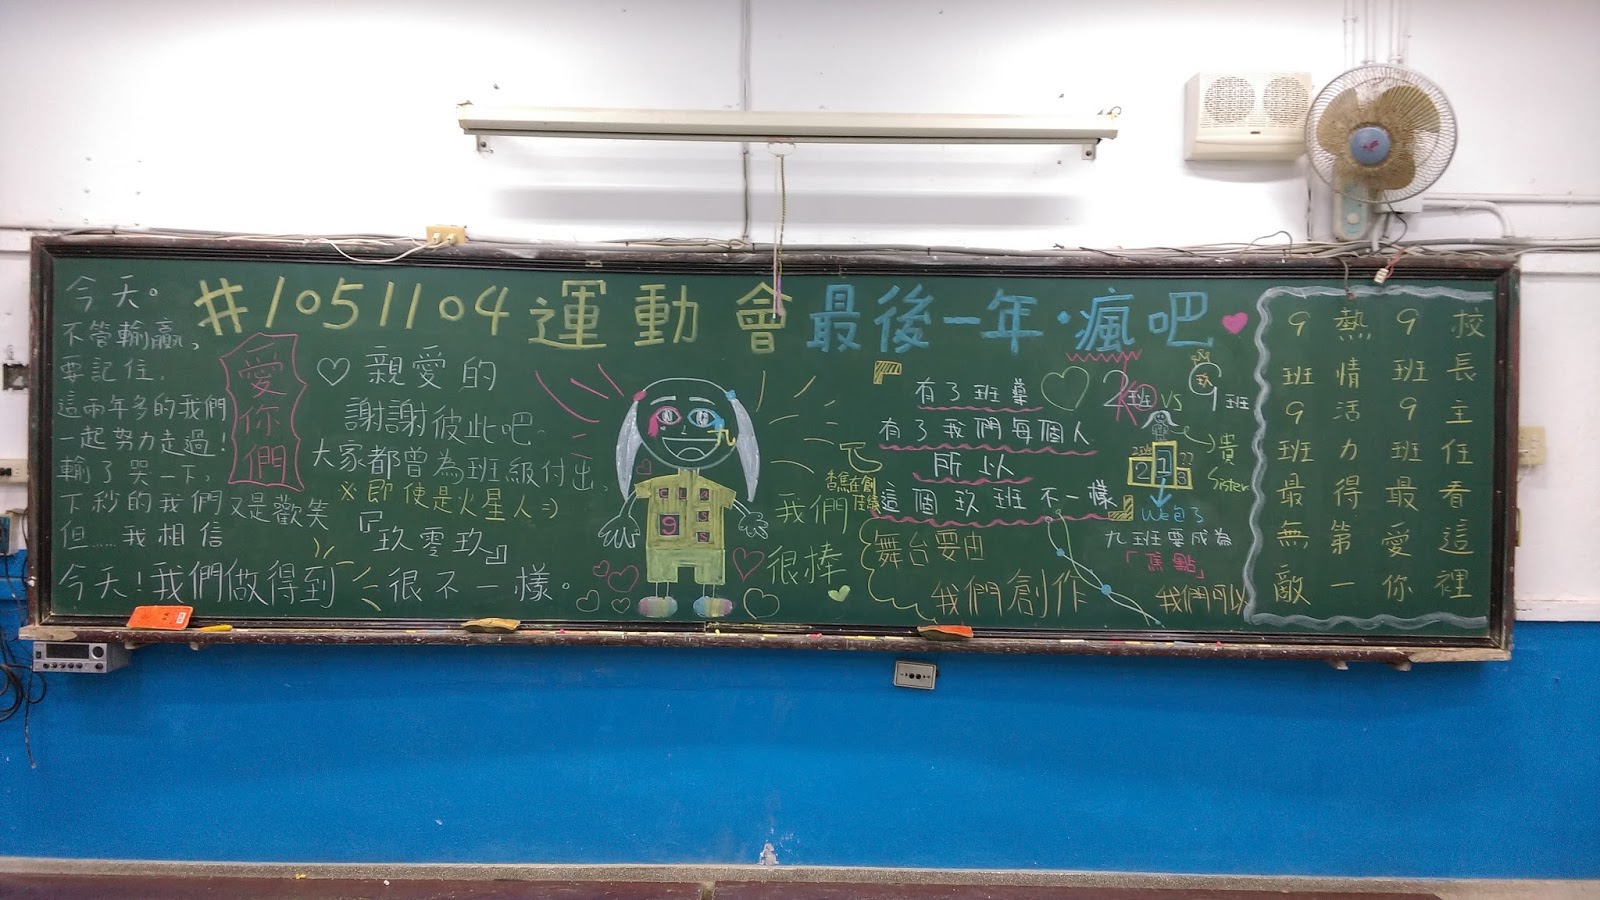 #1051104運動會最後一年·瘋吧
今天。
不管輸贏,
要記住,
這兩年多的我們
一起努力走過!
輸了哭一下,
下秒的我們又是歡笑
但……我相信
今天!我們做得到
很不一樣。
愛你們
親愛的
謝謝彼此吧~
大家都曾為班級付出,
※即使是火星人=)
『玖零玖』
class
9
九
我們
很棒
有了班導
有了我們每個人
所以
這個玖班不一樣
舞台要由
我們創作
2班 VS 9班
玖
2 1 3
貴
Sister
We包了
九班要成為
「焦點」
我們可以
校長主任看這裡
9班9班最愛你
熱情活力得第一
9班9班最無敵